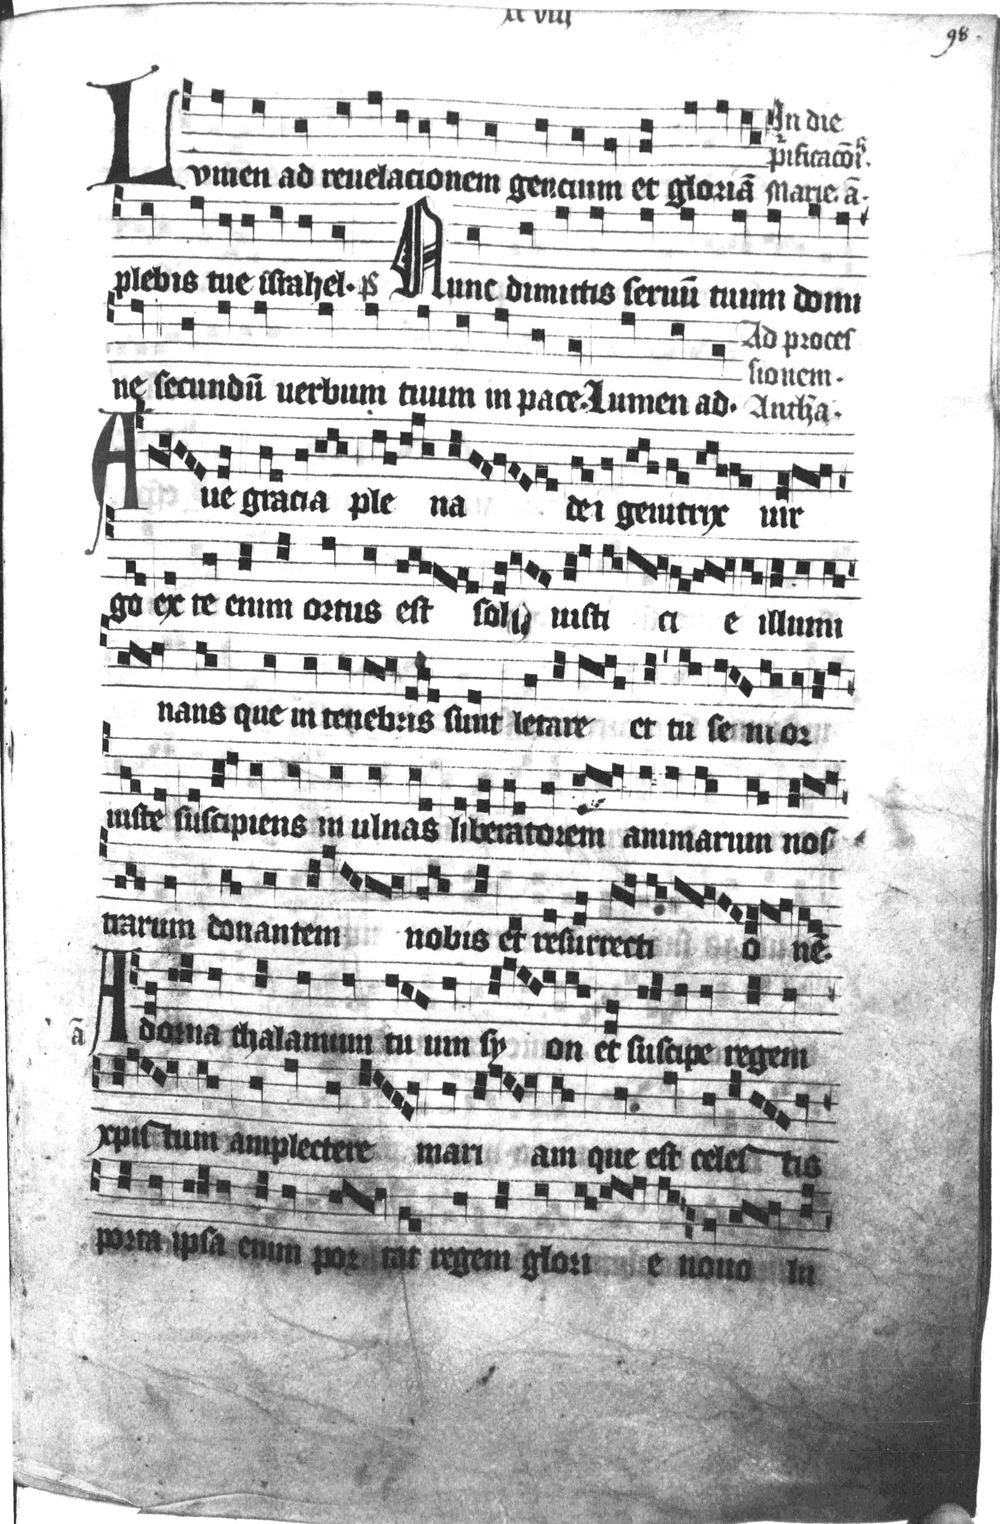 xcviij
98.
In die
pificacõis
Lvmen ad reuelacionem gencium et gloriã Marie. ã.
plebis tue israhel. ps Nunc dimittis seruũ tuum domi
Ad proces
sionem.
ne secundũ uerbum tuum in pace. Lumen ad. Anthã.
Aue gracia ple na dei genitrix uir
go ex te enim ortus est sol iusti ci e illumi
nans que in tenebris sunt letare et tu se ni or
iuste suscipiens in ulnas liberatorem animarum nos
trarum donantem nobis et resurrecti o nẽ.
ã Adorna thalamum tu um sy on et suscipe regem
xpistum amplectere mari am que est celes tis
porta ipsa enim por tat regem glori e nouo lu